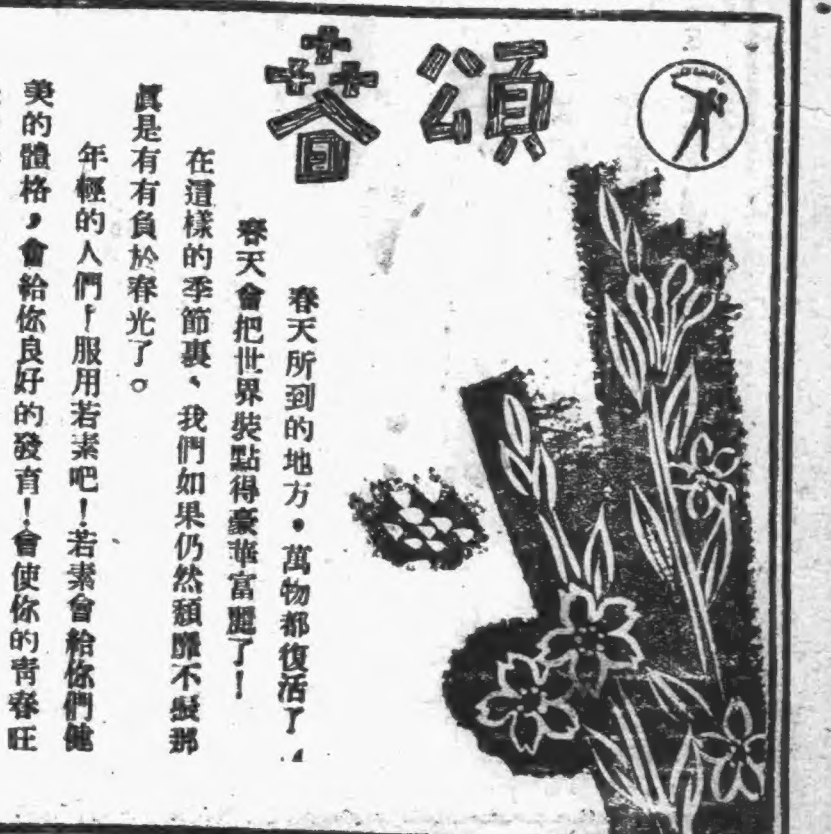 頌春
春天所到的地方，萬物都復活了，
春天會把世界裝點得豪華富麗了！
在這樣的季節裏、我們如果仍然頹靡不振那
眞是有有負於春光了。
年輕的人們！服用若素吧！若素會給你們健
美的體格，會給你良好的發育！會使你的靑春旺